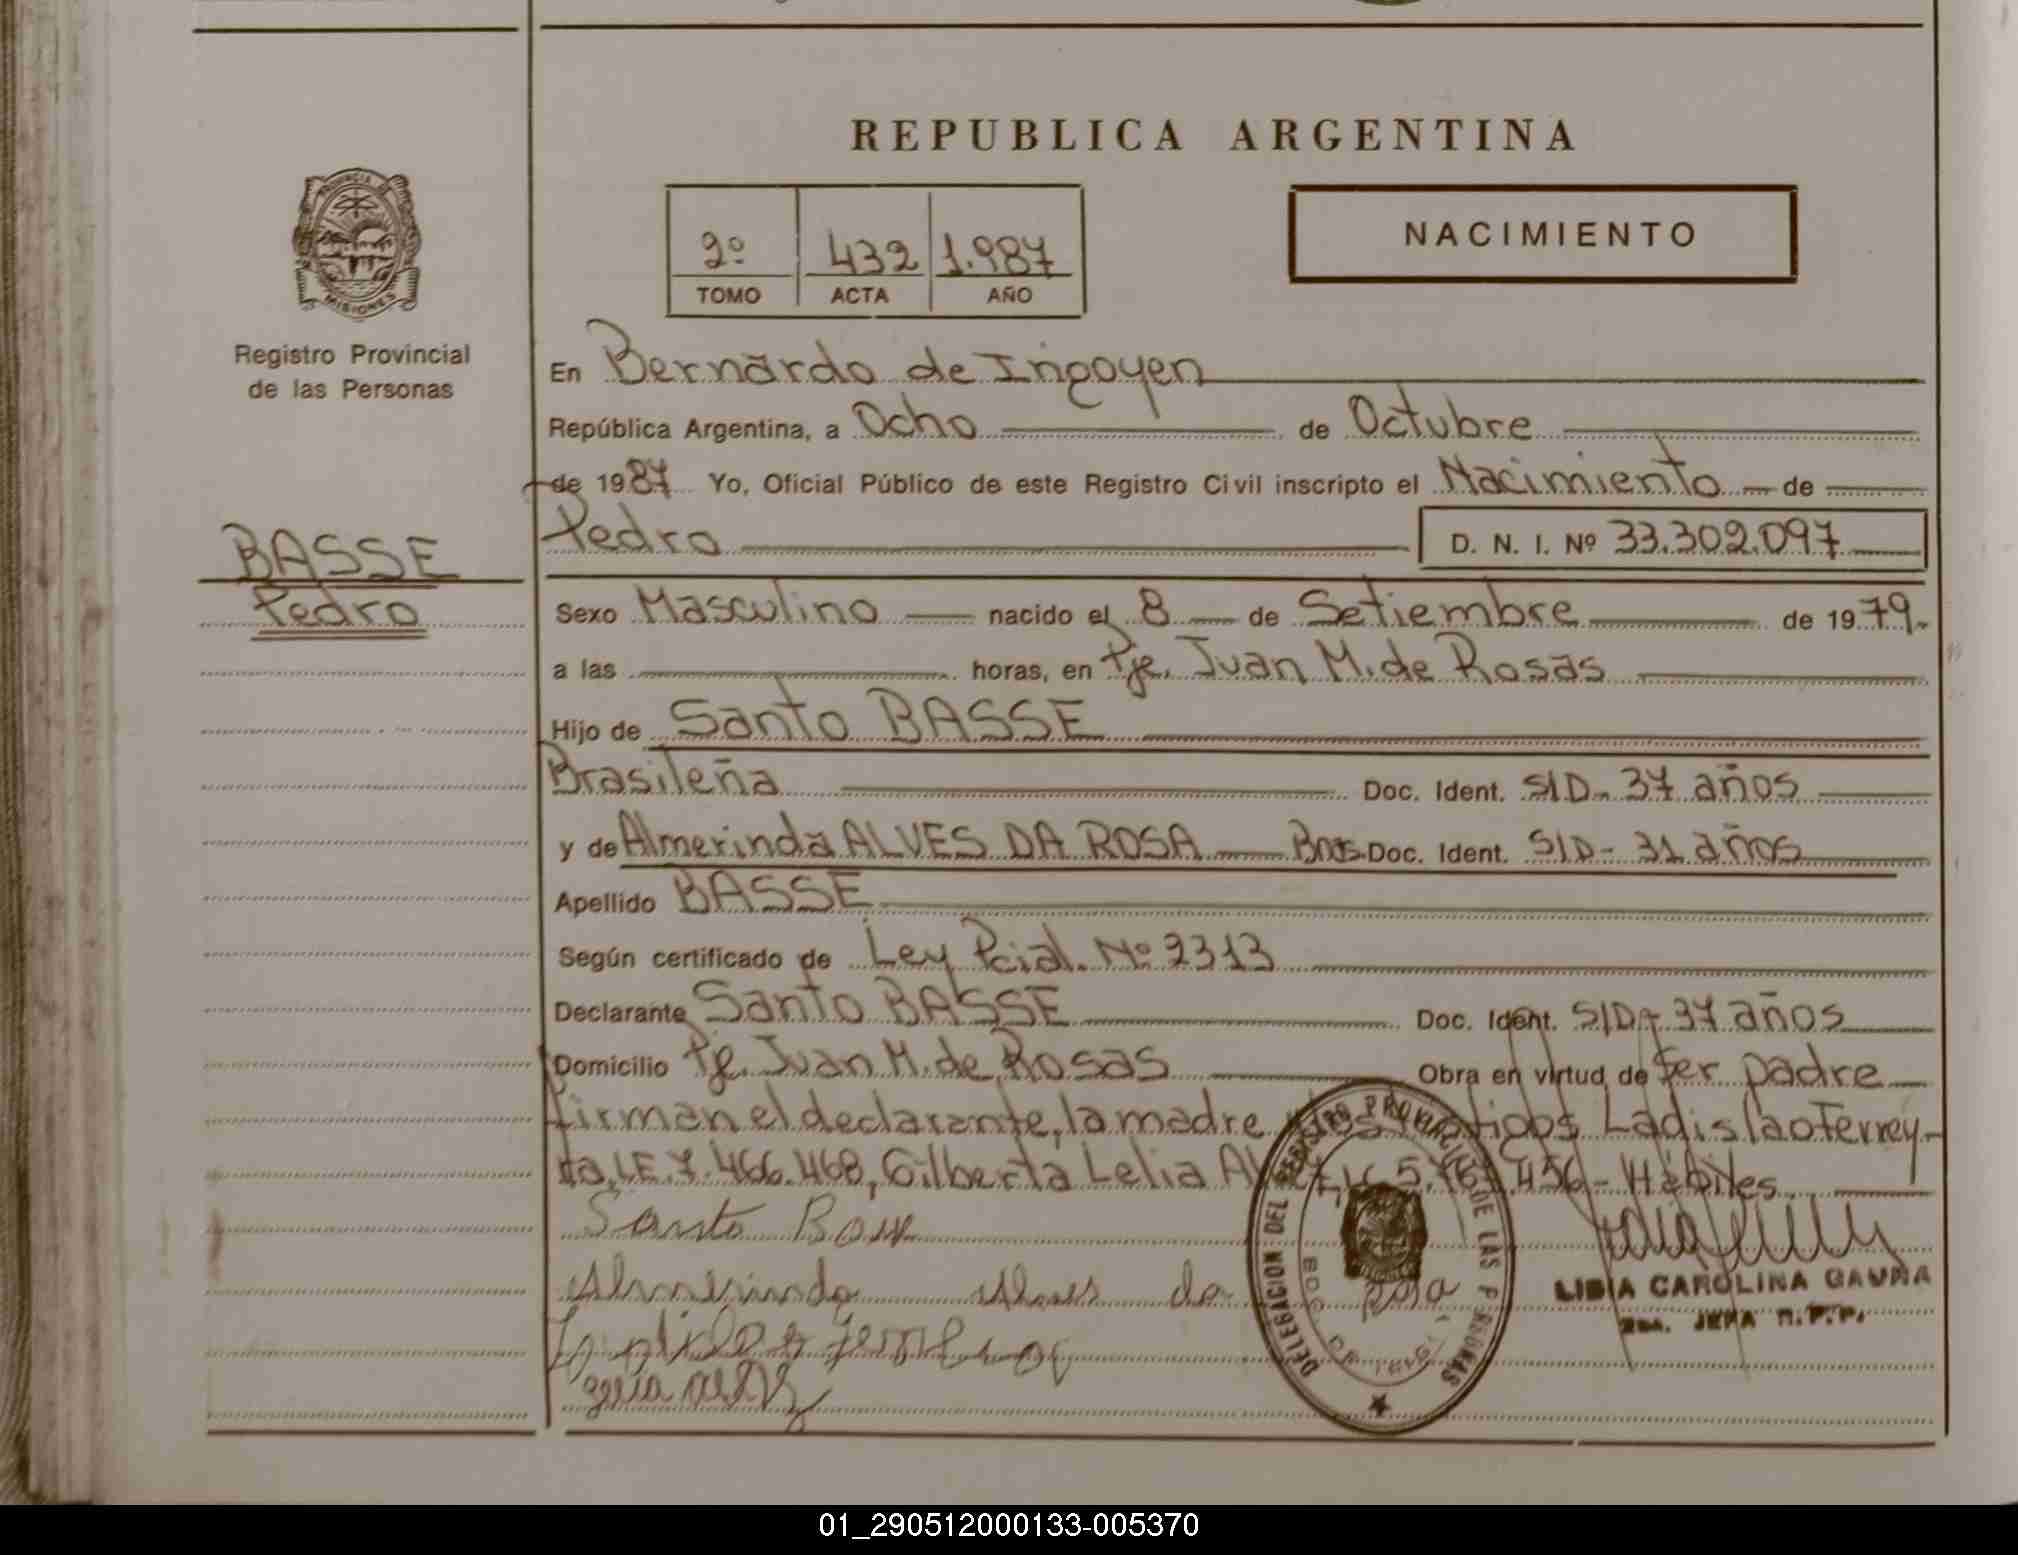 REPUBLICA ARGENTINA
PROVINCIA DE
MISIONES
Registro Provincial
de las Personas
2º 432 1.987
TOMO ACTA AÑO
NACIMIENTO
En Bernardo de Irigoyen
República Argentina, a Ocho de Octubre
de 1987 Yo, Oficial Público de este Registro Civil inscripto el Nacimiento de
Pedro D. N. I. Nº 33.302.097
BASSE
Pedro
Sexo Masculino nacido el 8 de Setiembre de 1979.
a las horas, en Pje. Juan M. de Rosas
Hijo de Santo BASSE
Brasileña Doc. Ident. S/D- 37 años
y de Almerinda ALVES DA ROSA Bras. Doc. Ident. S/D- 31 años
Apellido BASSE
Según certificado de Ley Pcial. Nº 2313
Declarante Santo BASSE Doc. Ident. S/D- 37 años
Domicilio Pje. Juan M. de Rosas Obra en virtud de ser padre
firman el declarante, la madre Ladislao Ferrey-
ra, L.E. 7.466.468, Gilberta Lelia - Hábiles
Santo
Almerinda Alves da Rosa
DELEGACION DEL REGISTRO PROVINCIAL DE LAS PERSONAS
LIDIA CAROLINA GAUNA
JEFA R.P.P.
01_290512000133-005370